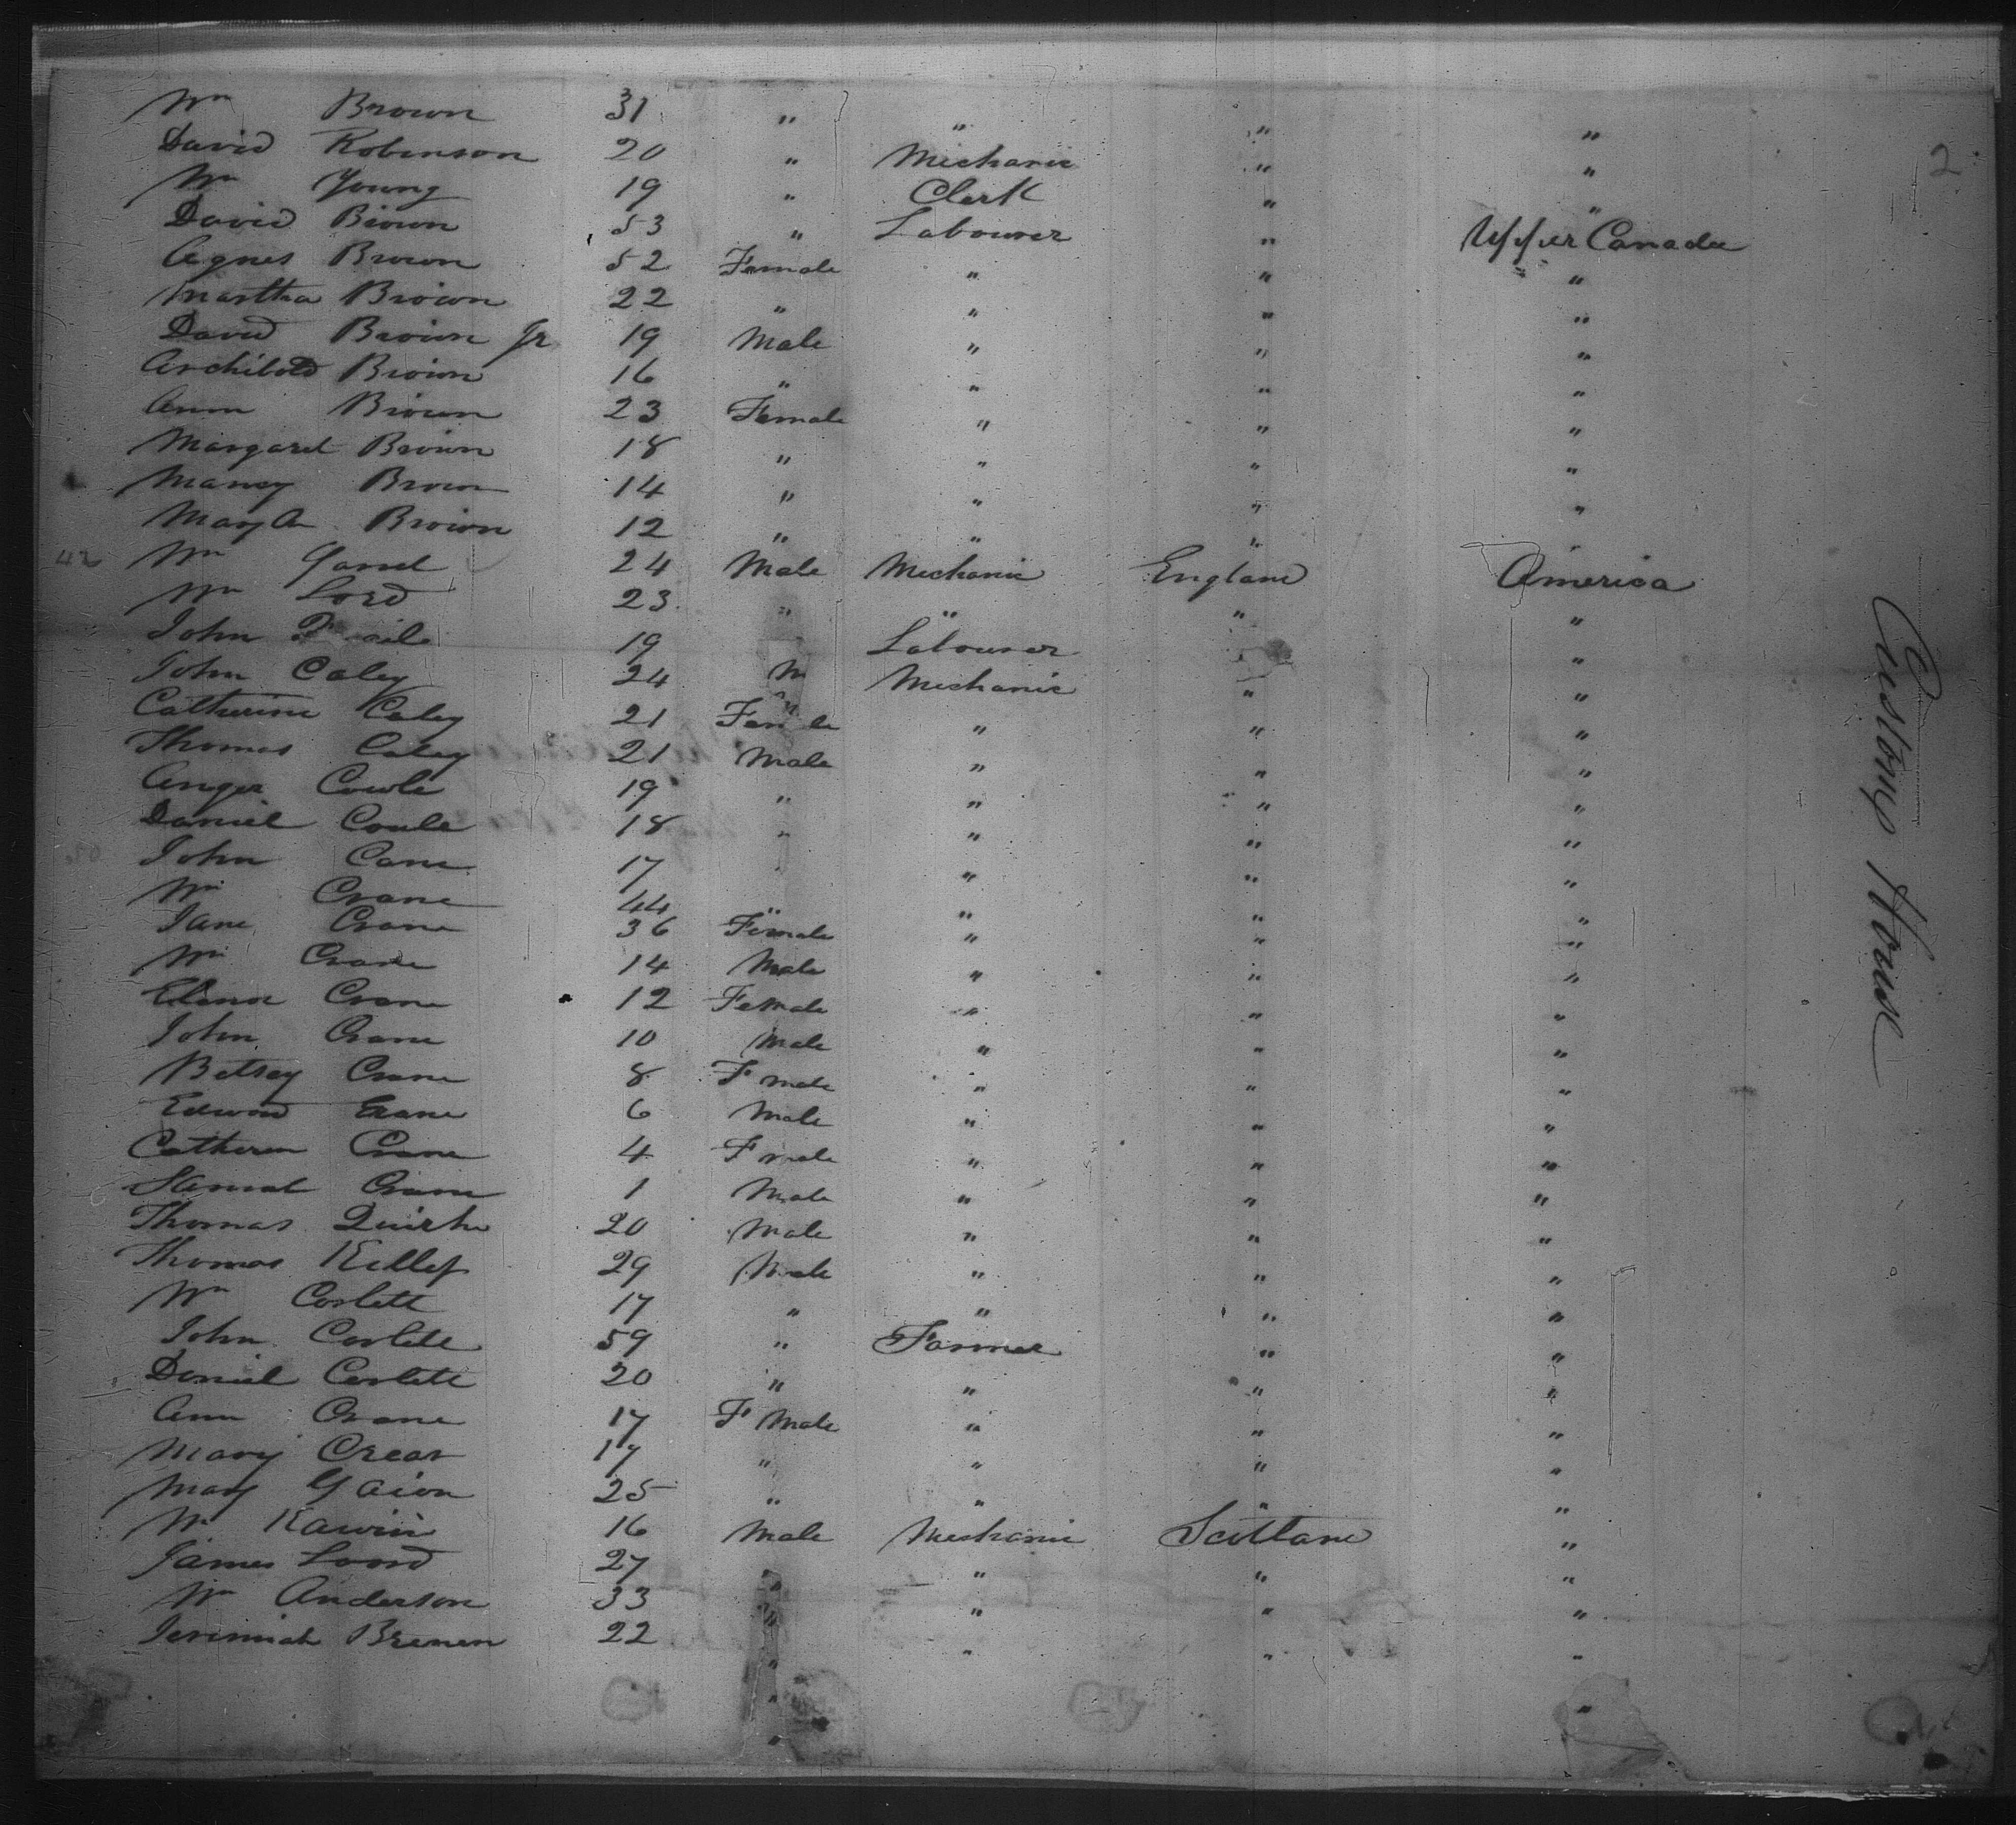 Wm Brown 31 " " " "
David Robinson 20 " Mechanic " "
Wm Young 19 " Clerk " "
David Brown 53 " Labourer " Upper Canada
Agnes Brown 52 Female " " "
Martha Brown 22 " " " "
David Brown Jr 19 Male " " "
Archibald Brown 16 " " " "
Ann Brown 23 Female " " "
Margaret Brown 18 " " " "
Brown 14 " " " "
Mary A Brown 12 " " " "
Wm 24 Male Mechanic England America
Wm Lord 23 " " " "
John 19 Labourer " "
John Caley 24 M Mechanic " "
Catherine Caley 21 Female " " "
Thomas Caley 21 Male " " "
Cowle 19 " " " "
Daniel Cowle 18 " " " "
John Cane 17 " " "
Wm Crane 44 " " " "
Jane Crane 36 Female " " "
Wm Crane 14 Male " " "
Crane 12 Female " " "
John Crane 10 Male " " "
Betsey Crane 8 Fmale " " "
Edward Crane 6 Male " " "
Catheren Crane 4 Fmale " " "
Crane 1 Male " " "
Thomas Quirke 20 Male " " "
Thomas 29 Male " " "
Wm Corlett 17 " " " "
John Corlett 59 " Farmer " "
Daniel Corlett 20 " " " "
Ann Crane 17 F Male " " "
Mary 17 " " " "
Mary 25 " " " "
Wm 16 Male Mechanic Scotland "
James 27 " " " "
Wm Anderson 33 " " " "
Jeremiah Brenen 22 " " " "
2
Customs House